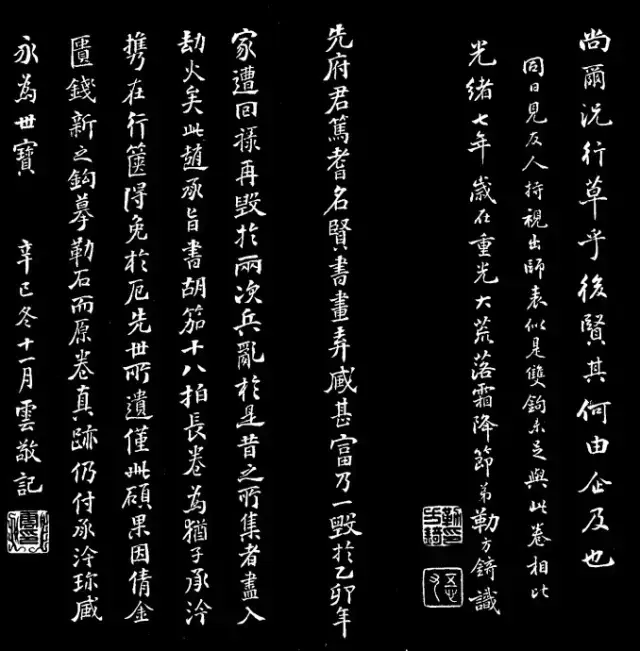 尚爾況行草乎後賢其何由企及也
同日見友人持視出師表似是雙鉤未足與此卷相比
光緒七年歲在重光大荒落霜降節弟勒方錡識
先府君篤耆名賢書畫弆臧甚富乃一毀於乙卯年
家遭回祿再毀於兩次兵亂於是昔之所集者盡入
劫火矣此趙承旨書胡笳十八拍長卷為猶子承泠
携在行篋得免於厄先世所遺僅此碩果因倩金
匱錢新之鉤摹勒石而原卷真跡仍付承泠珎臧
永為世寶 辛巳冬十一月雲敬記